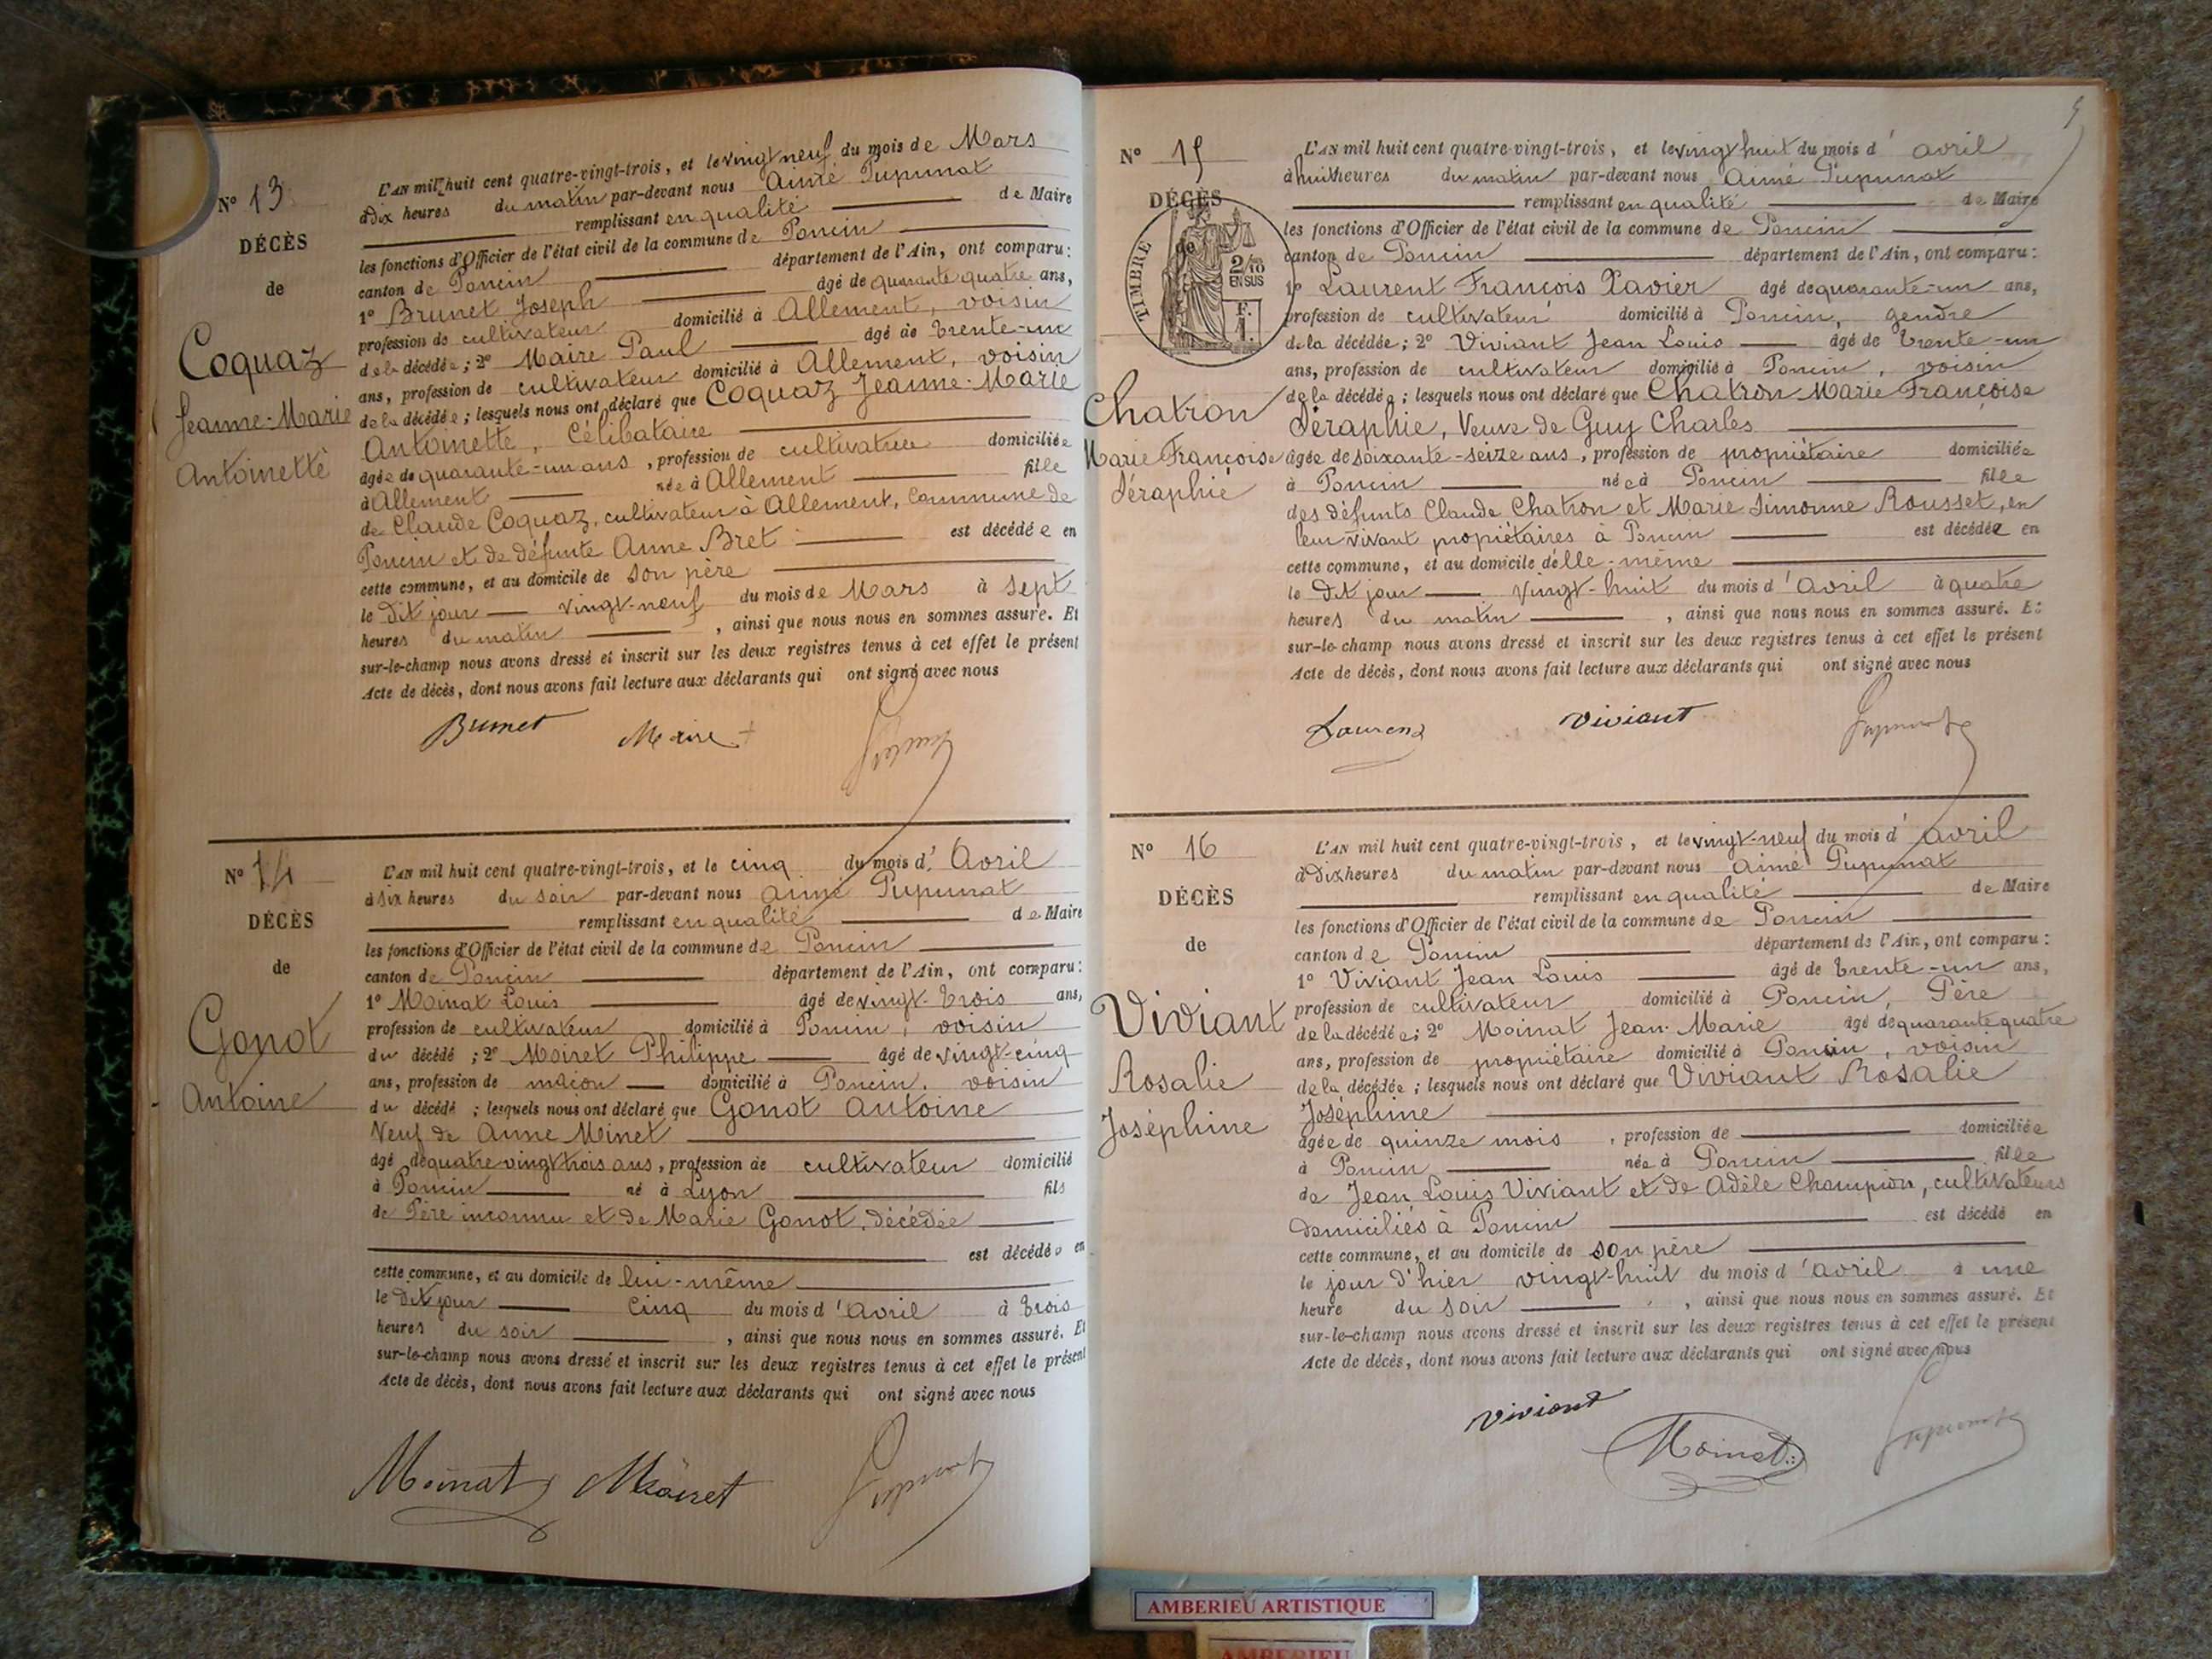 Nº 13
DÉCÈS
de
Coquaz
Jeanne-Marie
Antoinette
L'AN mil huit cent quatre-vingt-trois, et le vingt neuf du mois de Mars
à Dix heures du matin par-devant nous Aimé Pupunat
remplissant en qualité de Maire
les fonctions d'Officier de l'état civil de la commune de Poncin
canton de Poncin département de l'Ain, ont comparu:
1º Brunet Joseph âgé de quarante quatre ans,
profession de cultivateur domicilié à Allement, voisin
de la décédée; 2º Maire Paul âgé de trente-un
ans, profession de cultivateur domicilié à Allement, voisin
de la décédée; lesquels nous ont déclaré que Coquaz Jeanne-Marie
Antoinette, Célibataire
âgée de quarante-un ans, profession de cultivatrice domiciliée
à Allement née à Allement fille
de Claude Coquaz, cultivateur à Allement, Commune de
Poncin et de défunte Anne Bret est décédée en
cette commune, et au domicile de son père
le Dit jour vingt-neuf du mois de Mars à sept
heures du matin, ainsi que nous nous en sommes assuré. Et
sur-le-champ nous avons dressé et inscrit sur les deux registres tenus à cet effet le présent
Acte de décès, dont nous avons fait lecture aux déclarants qui ont signé avec nous
Brunet Maire
Nº 14
DÉCÈS
de
Gonot
Antoine
L'AN mil huit cent quatre-vingt-trois, et le cinq du mois d'Avril
à six heures du soir par-devant nous Aimé Pupunat
remplissant en qualité de Maire
les fonctions d'Officier de l'état civil de la commune de Poncin
canton de Poncin département de l'Ain, ont comparu:
1º Moinat Louis âgé de vingt-trois ans,
profession de cultivateur domicilié à Poncin, voisin
du décédé; 2º Moiret Philippe âgé de vingt-cinq
ans, profession de maçon domicilié à Poncin, voisin
du décédé; lesquels nous ont déclaré que Gonot Antoine
Veuf de Anne Minet
âgé de quatre vingt trois ans, profession de cultivateur domicilié
à Poncin né à Lyon fils
de Père inconnu et de Marie Gonot, décédée
est décédé en
cette commune, et au domicile de lui-même
le Dit jour cinq du mois d'avril à trois
heures du soir, ainsi que nous nous en sommes assuré. Et
sur-le-champ nous avons dressé et inscrit sur les deux registres tenus à cet effet le présent
Acte de décès, dont nous avons fait lecture aux déclarants qui ont signé avec nous
Moinat Moiret Pupunat
5
Nº 15
DÉCÈS
de
TIMBRE
2/10
EN SUS
F.
1.
Chatron
Marie Françoise
Séraphie
L'AN mil huit cent quatre-vingt-trois, et le vingt huit du mois d'avril
à huit heures du matin par-devant nous Aimé Pupunat
remplissant en qualité de Maire
les fonctions d'Officier de l'état civil de la commune de Poncin
canton de Poncin département de l'Ain, ont comparu:
1º Laurent François Xavier âgé de quarante-un ans,
profession de cultivateur domicilié à Poncin, gendre
de la décédée; 2º Viviant Jean Louis âgé de trente-un
ans, profession de cultivateur domicilié à Poncin, voisin
de la décédée; lesquels nous ont déclaré que Chatron Marie Françoise
Séraphie, Veuve de Guy Charles
âgée de soixante-seize ans, profession de propriétaire domiciliée
à Poncin née à Poncin fille
des défunts Claude Chatron et Marie Simonne Rousset, en
leur vivant propiétaires à Poncin est décédée en
cette commune, et au domicile d'elle-même
le Dit jour Vingt-huit du mois d'avril à quatre
heures du matin, ainsi que nous nous en sommes assuré. Et
sur-le-champ nous avons dressé et inscrit sur les deux registres tenus à cet effet le présent
Acte de décès, dont nous avons fait lecture aux déclarants qui ont signé avec nous
Laurent Viviant Pupunat
Nº 16
DÉCÈS
de
Viviant
Rosalie
Joséphine
L'AN mil huit cent quatre-vingt-trois, et le vingt-neuf du mois d'avril
à Dix heures du matin par-devant nous Aimé Pupunat
remplissant en qualité de Maire
les fonctions d'Officier de l'état civil de la commune de Poncin
canton de Poncin département de l'Ain, ont comparu:
1º Viviant Jean Louis âgé de trente-un ans,
profession de cultivateur domicilié à Poncin, Père
de la décédée; 2º Moinat Jean-Marie âgé de quarante quatre
ans, profession de propiétaire domicilié à Poncin, voisin
de la décédée; lesquels nous ont déclaré que Viviant Rosalie
Joséphine
âgée de quinze mois, profession de domiciliée
à Poncin née à Poncin fille
de Jean Louis Viviant et de Adèle Champion, cultivateurs
domiciliés à Poncin est décédé en
cette commune, et au domicile de son père
le jour d'hier vingt-huit du mois d'avril à une
heure du soir, ainsi que nous nous en sommes assuré. Et
sur-le-champ nous avons dressé et inscrit sur les deux registres tenus à cet effet le présent
Acte de décès, dont nous avons fait lecture aux déclarants qui ont signé avec nous
Viviant Moinat Pupunat
AMBERIEU ARTISTIQUE
AMBERIEU